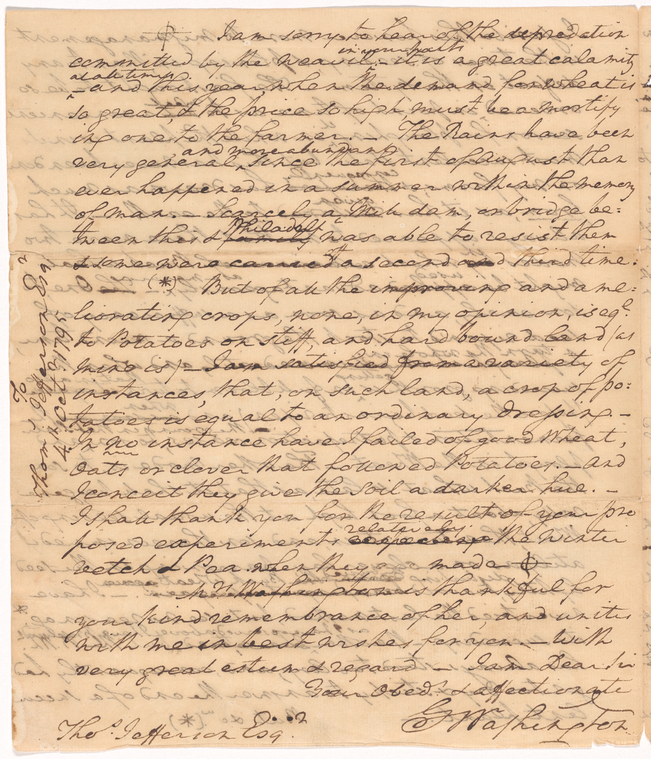 I am sorry to hear of the depredation
committed by the weavil in your parts – it is a great calamity
at all times – and this year, when the demand for wheat is
so great & the price so high must be a mortify
ing one to the farmer. – The Rains have been
very general, and more abundant since the first of August than
ever happened in a summer within the memory
of man. – Scarcely a Mill dam, or bridge be=
tween this & Philadelpa was able to resist them
& some were carried a second and third time.
(*) But of all the improving and ame=
liorating crops, none, in my opinion, is eql.
to Potatoes on stiff, and hard bound land (as
mine is) – I am satisfied from a variety of
instances, that, on such land, a crop of po=
tatoes is equal to an ordinary dressing –
In no instance have I failed of good Wheat,
Oats or clover that followed Potatoes. – And
I conceit they give the soil a darker hue. –
I shall thank you for the result of your pro
posed experiments relatively the Winter
Vetch & Pea when they are made
Mrs Washington is thankful for
your kind remembrance of her, and unites
with me in best wishes for you. – With
very great esteem & regard – I am Dear Sir
Your Obedt & affectionate
Go Washington
Thos. Jefferson Esqr.
To
Thoms Jefferson Esqr
4th Octr 1795